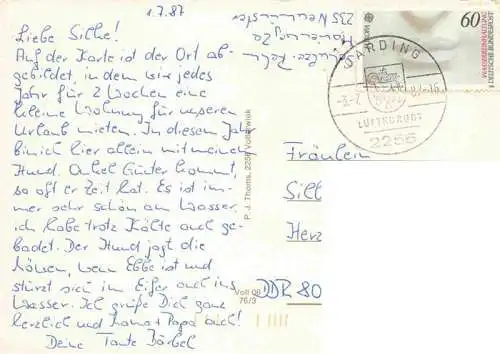 1.7.87
Liebe Silke!
Auf der Karte ist der Ort ab-
gebildet, in dem wir jedes
Jahr für 2 Wochen eine
kleine Wohnung für unseren
Urlaub mieten. In diesem Jahr
bin ich hier allein mit meinem
Hund. Onkel Günter kommt,
so oft er Zeit hat. Es ist im-
mer sehr schön am Wasser,
ich habe trotz Kälte auch ge-
badet. Der Hund jagt die
Möwen, wenn Ebbe ist und
stürzt sich im Eifer auch ins
Wasser. Ich grüße Dich ganz
herzlich und Mama + Papa auch!
Deine Tante Bärbel
235 Neumünster
P. J. Thoms, 2256 Vollerwiek
Voll 08
76/3
60
DEUTSCHE BUNDESPOST
GARDING
LUFTKURORT
2256
Fräulein
Silk
Herz
DDR 80